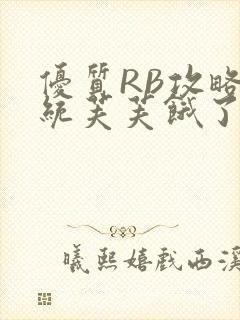 優質RB攻略
統芙芙餓了
曦熙嬉戲西溪